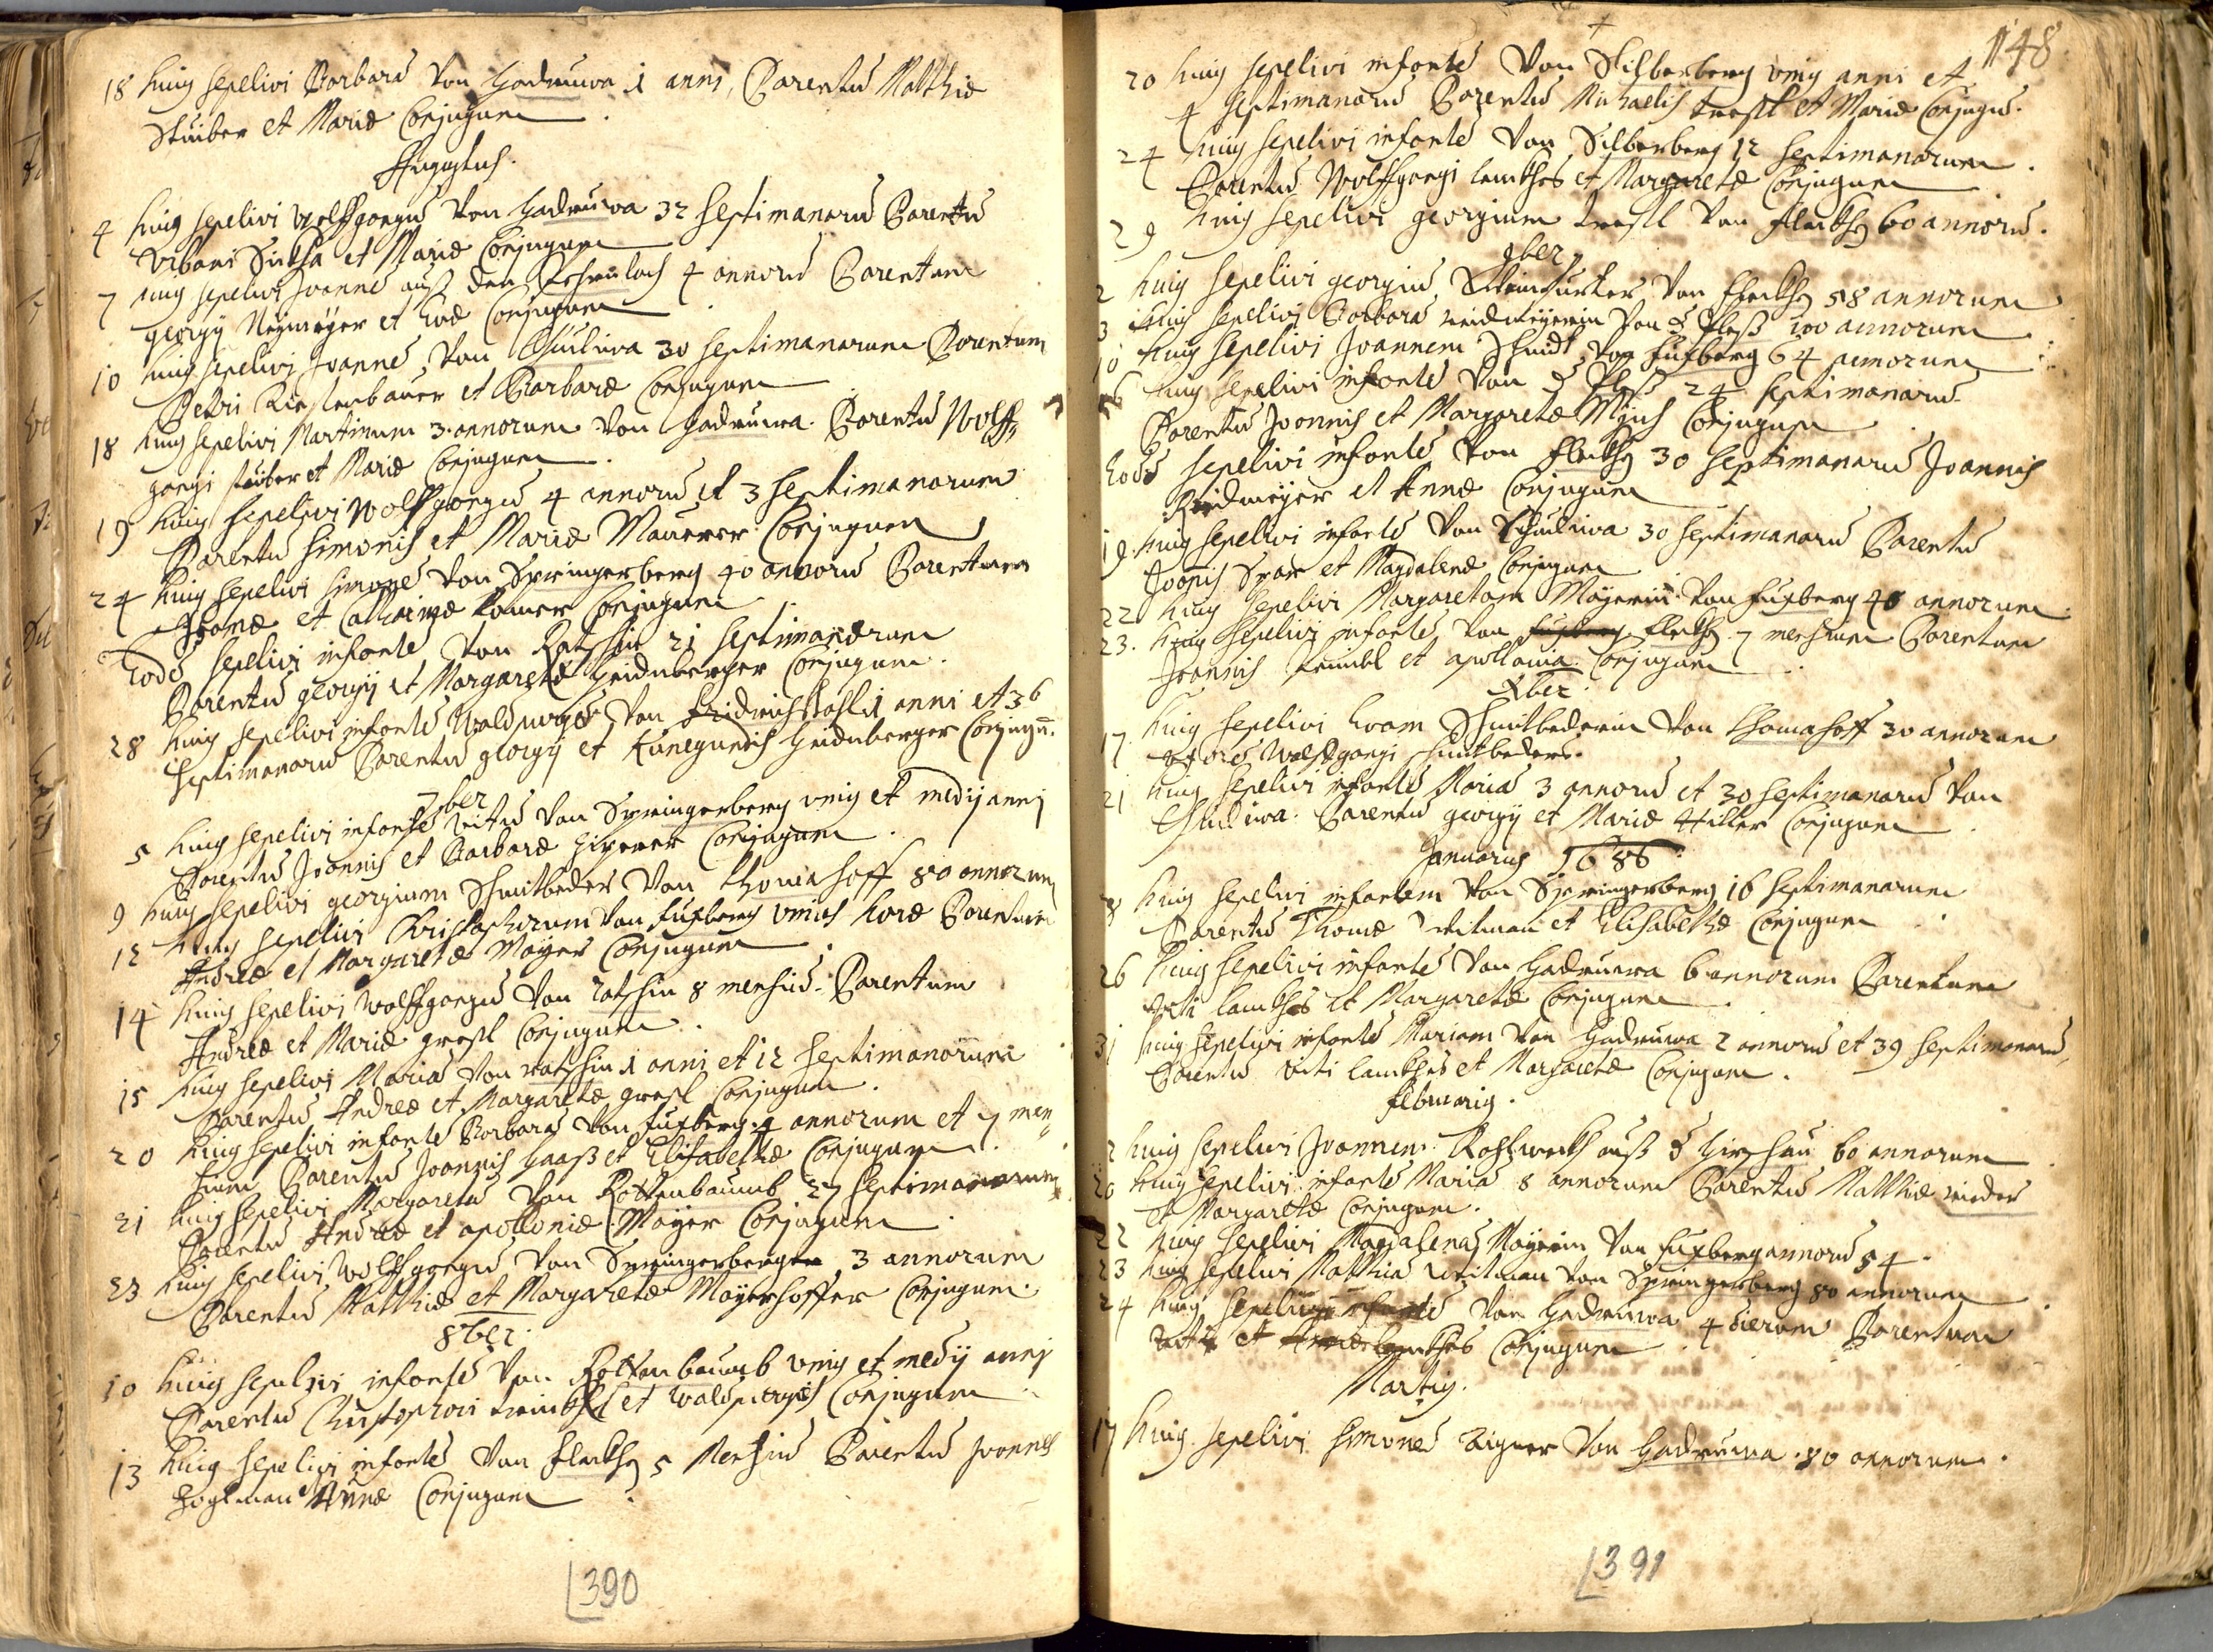 18 huiq sepelivi Barbarã von Hadruwa 1 anni, Parentũ Matthiæ
Stuiber et Mariæ Conjugum.
Augustus.
4 huiq sepelivi Wolffgangũ von Hadruwa 32 septimanarũ Parentũ
Urbani et Mariæ Conjugum
7 huiq sepelivi Joannẽ auß den 4 annorũ Parentum
georgij Neÿmaÿer et Evæ Conjugum
10 huiq sepelivi Joannẽ von Chudiwa 30 septimanarum Parentum
Petri et Barbaræ Conjugum
18 huiq sepelivi Martinum 3 annorum von Hadruwa. Parentũ Wolff-
gangi stuiber et Mariæ Conjugum.
19 huiq sepelivi Wolffgangũ 4 annorũ et 3 septimanarum
Parentũ Simonis et Mariæ Maurer Conjugum
24 huiq sepelivi Simonẽ von Springerberg 40 annorũ Parentum
et Catharinæ Conjugum.
Eodẽ sepelivi infantẽ von Rotschin 21 septimanarum
Parentũ georgij et Margaretæ Heidnberger Conjugum.
28 huiq sepelivi infantẽ Waldpurgã von Fridrichsthall 1 anni et 36
septimanarũ Parentũ georgij et Kunegundis Heidnberger Conjugũ.
7ber
5 huiq sepelivi infantẽ Vitũ von Springerberg uniq et medij anni
Parentũ Joannis et Barbaræ Conjugum.
9 huiq sepelivi georgium Schmitbeder von Thomahoff 80 annorum
12 huiq sepelivi Christophorum von Fuxberg unius horæ Parentum
Andreæ et Margaretæ Maÿer Conjugum.
14 huiq sepelivi Wolffgangũ von Rotschin 8 mensiũ. Parentum
Andreæ et Mariæ graßl Conjugum.
15 huiq sepelivi Mariã von rotschin 1 anni et 12 septimanarum
Parentũ Andreæ et Margaretæ graßl Conjugum.
20 huiq sepelivi infantẽ Barbarã von Fuxberg. 4 annorum et 7 men-
sium Parentũ Joannis Haaß et Elisabethæ Conjugum.
21 huiq sepelivi Margaretã von Rottenbaumb 27 septimanarum
Parentũ Andreæ et apolloniæ Maÿer Conjugum.
23 huiq sepelivi Wolffgangũ von Springerberg 3 annorum
Parentũ Matthiæ et Margaretæ Maÿerhoffer Conjugum.
8ber.
10 huiq sepelivi infantẽ von Rottenbaumb uniq et medij anni
Parentũ Christophori et Waldpurgis Conjugum
13 huiq sepelivi infantẽ von 5 Mensiũ Parentũ Joannis
Hoglman Annæ Conjugum.
390
148
20 huiq sepelivi infantẽ von Silberberg uniq anni et
4 septimanarũ Parentũ Michaelis et Mariæ Conjugũ.
24 huiq sepelivi infantẽ von Silberberg 12 septimanarum.
Parentũ Wolffgangi et Margaretæ Conjugum
29 huiq sepelivi georgium von 60 annorũ.
9ber
2 huiq sepelivi georgiũ von 58 annorum
3 huiq sepelivi Barbarã von 100 annorum
10 huiq sepelivi Joannem Schmidt von Fuxberg 64 annorum
16 huiq sepelivi infantẽ von 24 septimanarũ
Parentũ Joannis et Margaretæ Conjugum.
Eodẽ sepelivi infantẽ von 30 septimanarũ Joannis
et Annæ Conjugum
19 huiq sepelivi infantẽ von Chudiwa 30 septimanarũ Parentũ
Joannis et Magdalenæ Conjugum
22 huiq sepelivi Margaretam Maÿerin von Fuxberg 48 annorum
23. huiq sepelivi infantẽ von 7 mensium Parentum
Joannis et apollonia Conjugum
Xber.
17 huiq sepelivi Evam Schmitbederin von Thomahoff 30 annorum
Wolffgangi Schmitbeders.
21 huiq sepelivi infantẽ Mariã 3 annorũ et 30 septimanarũ von
Chudiwa. Parentũ georgij et Mariæ Hiller Conjugum.
Januarius 1686.
8 huiq sepelivi infantem von Springerberg 16 septimanarum
Parentũ Thomæ et Elisabethæ Conjugum
26 huiq sepelivi infantẽ von Hadruwa 6 annorum Parentum
Viti et Margaretæ Conjugum.
31 huiq sepelivi infantẽ Mariam von Hadruwa 2 annorũ et 39 septimanarũ
Parentũ Viti et Margaretæ Conjugum.
Februariq.
2 huiq sepelivi Joannem auß 60 annorum
20 huiq sepelivi infantẽ Mariã 8 annorum Parentũ Matthiæ
et Margaretæ Conjugum.
22 huiq sepelivi Magdalenã Maÿerin von Fuxberg annorũ 54.
23 huiq sepelivi Matthiã von Springerberg 80 annorum
24 huiq sepelivi infantẽ von Hadruwa 4 dierum Parentum
et Conjugum
Martiq.
17 huiq sepelivi Simonẽ von Hadruwa 80 annorum.
391